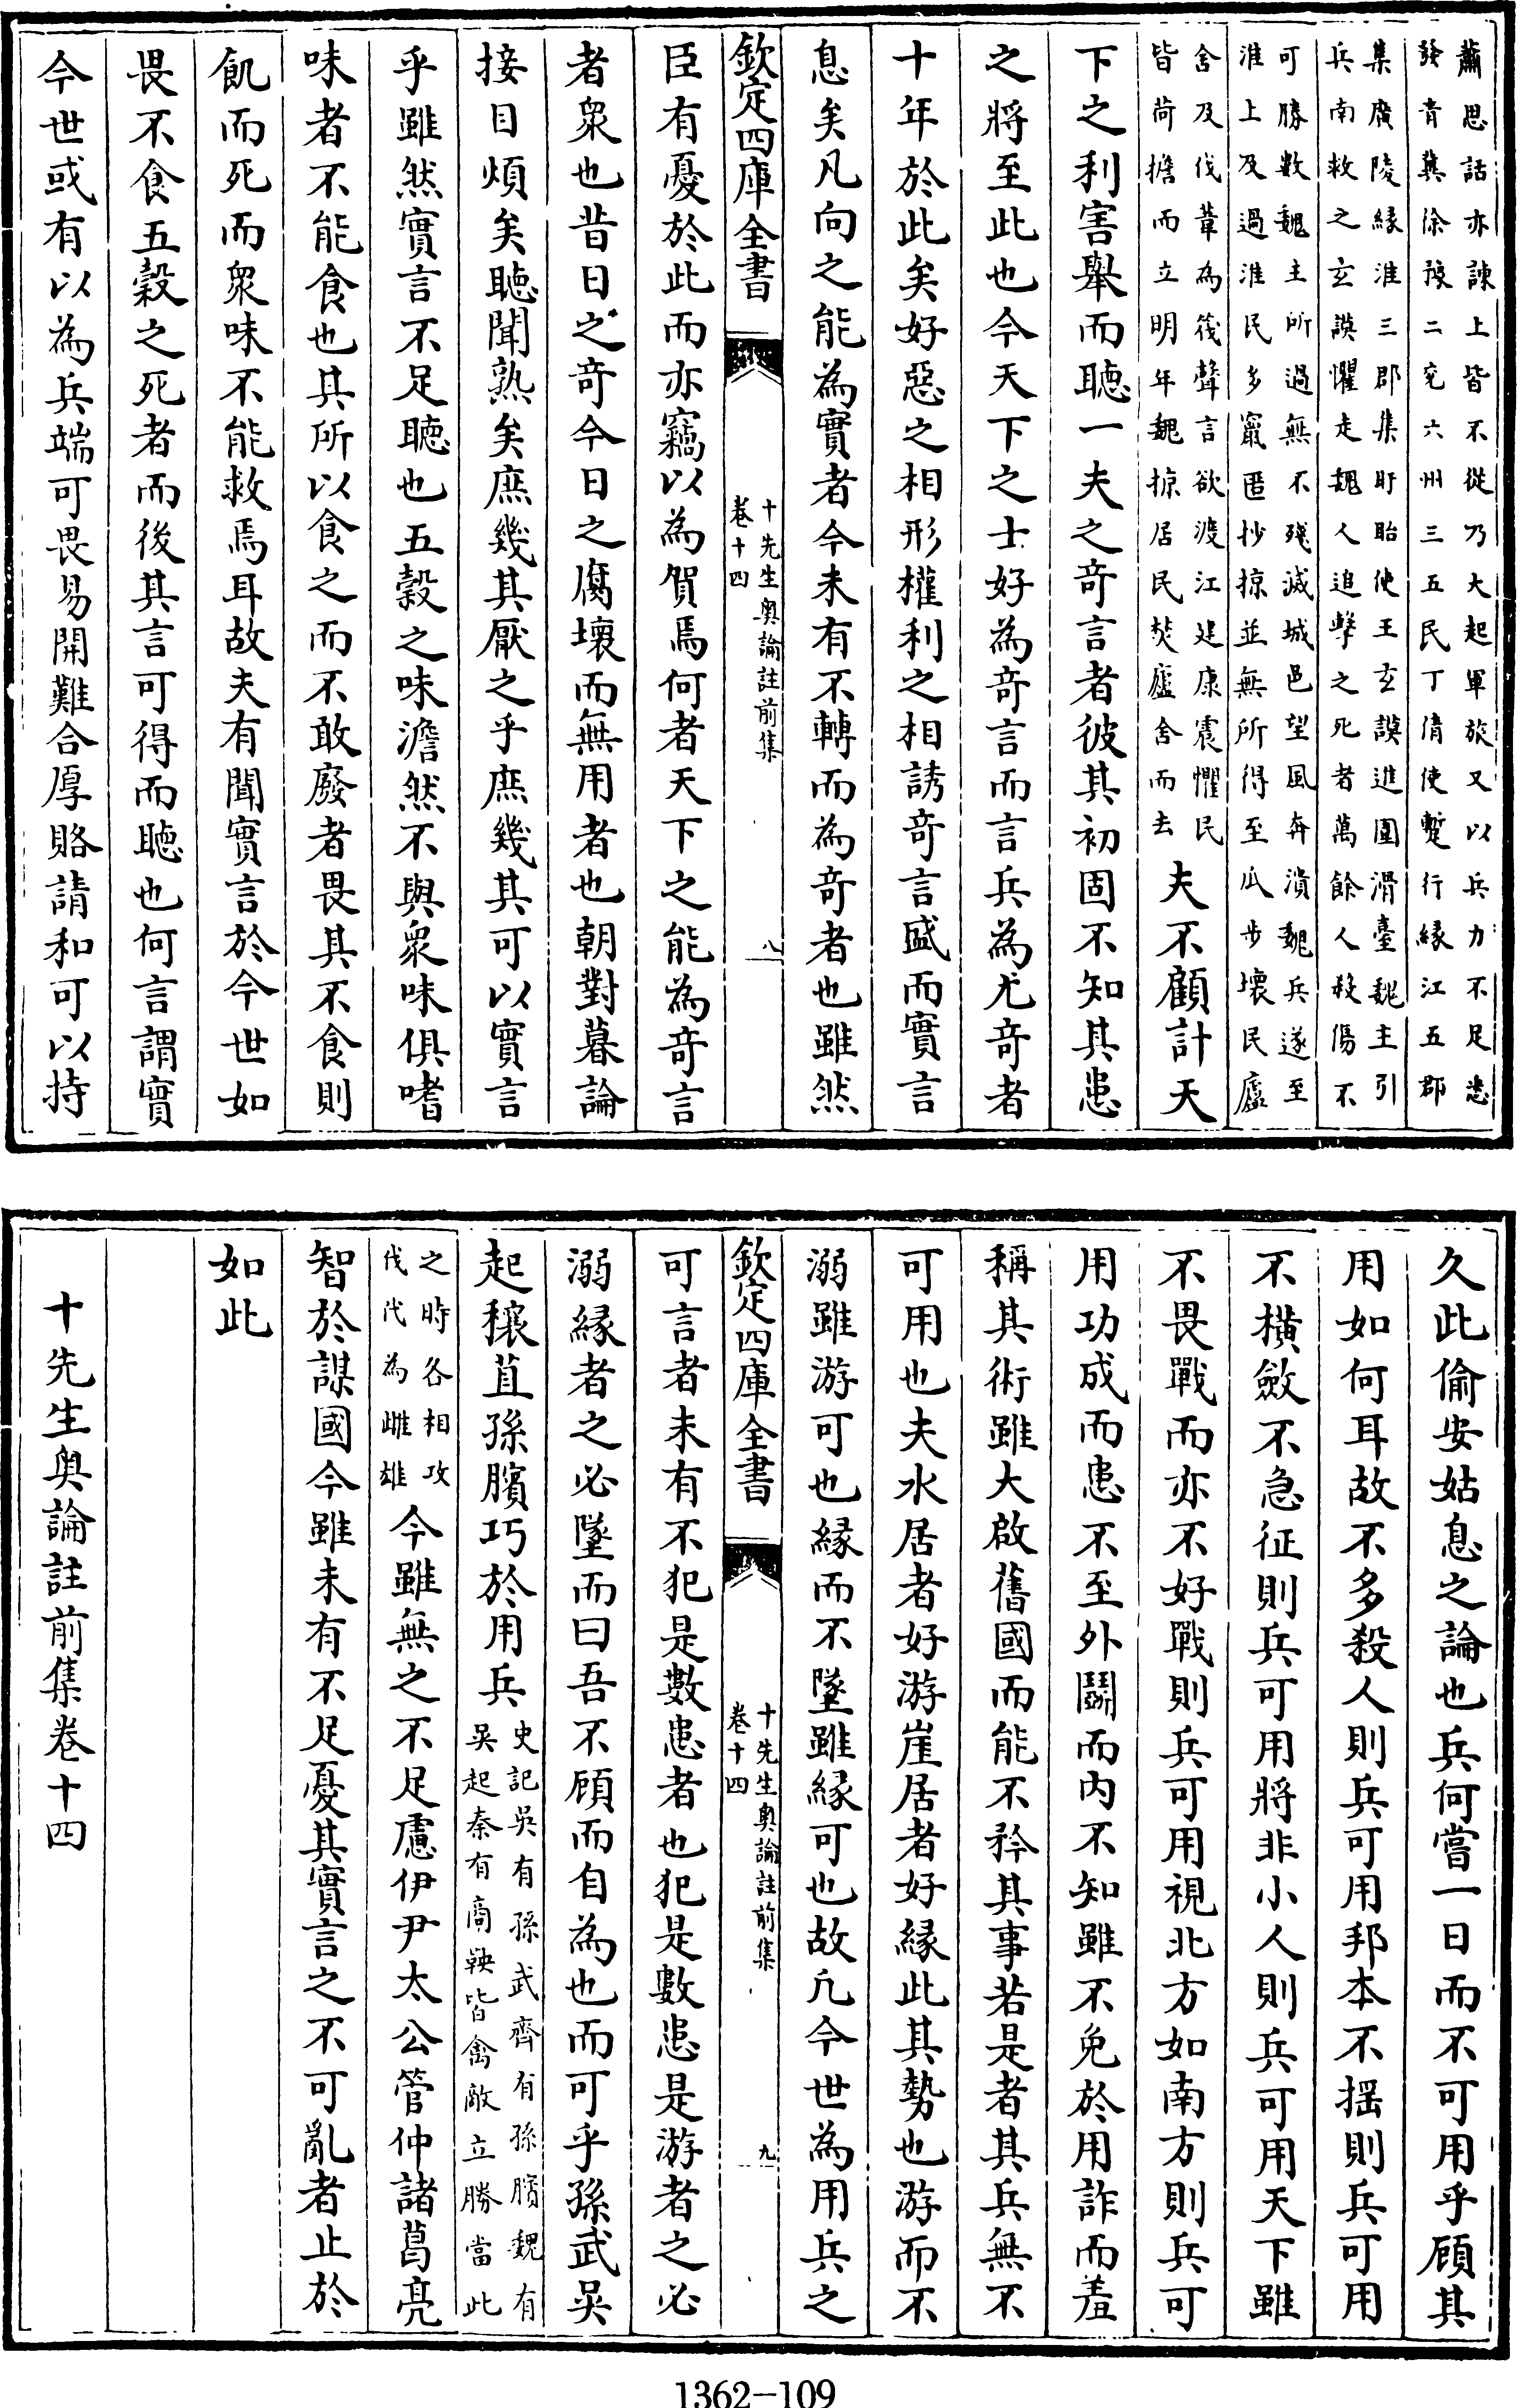 蕭思話亦諫上皆不從乃大起軍旅又以兵力不足悉
發青冀徐豫二兖六州三五民丁倩使蹔行緣江五郡
集廣陵緣淮三郡集盱眙使王玄謨進圍滑臺魏主引
兵南救之玄謨懼走魏人追擊之死者萬餘人殺傷不
可勝數魏主所過無不殘滅城邑望風奔潰魏兵遂至
淮上及過淮民多竄匿抄掠並無所得至瓜步壞民廬
舍及伐葦為筏聲言欲渡江建康震懼民
皆荷擔而立明年魏掠居民焚廬舍而去
夫不顧計天
下之利害舉而聽一夫之竒言者彼其初固不知其患
之將至此也今天下之士好為竒言而言兵為尤竒者
十年於此矣好惡之相形權利之相誘竒言盛而實言
息矣凡向之能為實者今未有不轉而為竒者也雖然
欽定四庫全書
十先生奥論註前集
卷十四
八
臣有憂於此而亦竊以為賀焉何者天下之能為竒言
者衆也昔日之竒今日之腐壞而無用者也朝對暮論
接目煩矣聽聞熟矣庶幾其厭之乎庶幾其可以實言
乎雖然實言不足聽也五穀之味澹然不與衆味俱嗜
味者不能食也其所以食之而不敢廢者畏其不食則
飢而死而衆味不能救焉耳故夫有聞實言於今世如
畏不食五穀之死者而後其言可得而聽也何言謂實
今世或有以為兵端可畏易開難合厚賂請和可以持
久此偷安姑息之論也兵何嘗一日而不可用乎顧其
用如何耳故不多殺人則兵可用邦本不揺則兵可用
不橫斂不急征則兵可用將非小人則兵可用天下雖
不畏戰而亦不好戰則兵可用視北方如南方則兵可
用功成而患不至外鬬而内不知雖不免於用詐而羞
稱其術雖大啟舊國而能不矜其事若是者其兵無不
可用也夫水居者好游崖居者好緣此其勢也游而不
溺雖游可也緣而不墜雖緣可也故凢今世為用兵之
欽定四庫全書
十先生奥論註前集
卷十四
九
可言者未有不犯是數患者也犯是數患是游者之必
溺緣者之必墜而曰吾不顧而自為也而可乎孫武吳
起穰苴孫臏巧於用兵
史記吳有孫武齊有孫臏魏有
吳起秦有商鞅皆禽敵立勝當此
之時各相攻
伐代為雌雄
今雖無之不足慮伊尹太公管仲諸葛亮
智於謀國今雖未有不足憂其實言之不可亂者止於
如此
十先生奥論註前集卷十四
1362-109